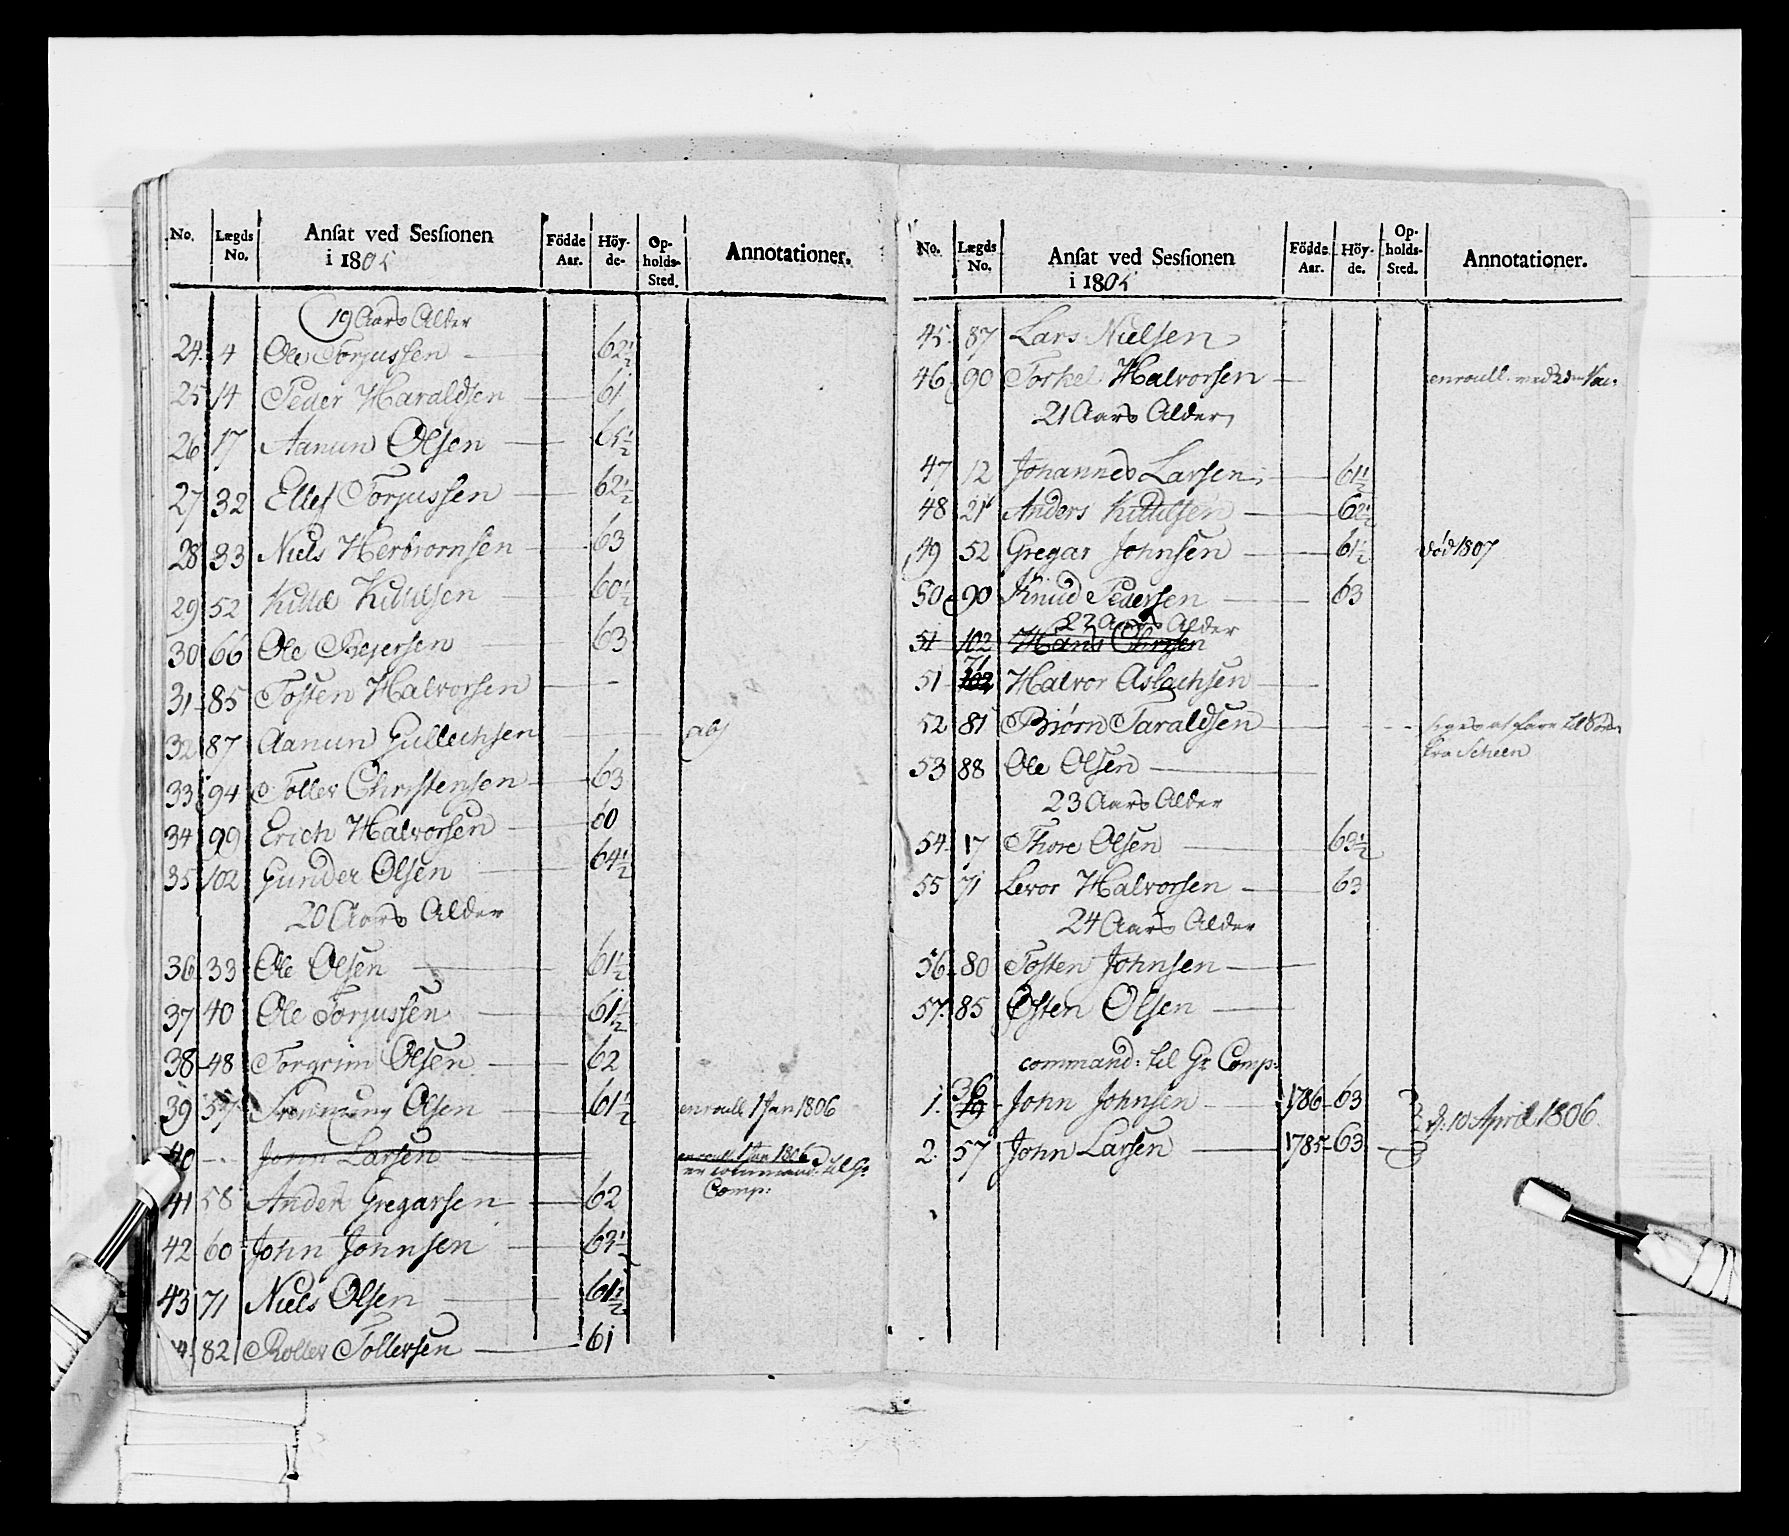 No. Lægds No. Ansat ved Sessionen i 1805 Födde Aar. Höy-de. Op-holds-Sted. Annotationer.
19 Aars Alder
24. 4 Ole Torjussen 62½
25 14 Peder Haraldsen 61
26 17 Aanun Olsen 65½
27 32 Ellef Torjussen 62½
28 33 Niels Herbiornsen 63
29 52 Kittil Kittilsen 60½
30 66 Ole Pedersen 63
31 85 Tosten Halvorsen
32 87 Aanun Gullechsen
33 94 Toller Christensen 63
34 99 Erich Halvorsen 60
35 102 Gunder Olsen 64½
20 Aars Alder
36 33 Ole Olsen 61½
37 40 Ole Torjussen 61½
38 48 Torgrim Olsen 62
39 57 Olsen 61½ enroull 1 Jan 1806
40 - John Larsen enroull 1 Jan 1806
er command: til Gr
Comp:
41 58 Anders Gregarsen 62
42 60 John Johnsen 63½
43 71 Niels Olsen 61½
82 Roller Tollersen 61
No. Lægds No. Ansat ved Sessionen i 1805 Födde Aar. Höy-de. Op-holds-Sted. Annotationer.
45. 87 Lars Nielsen
46 90 Torkel Halvorsen enroull.
21 Aars Alder
47 12 Johannes Larsen 61½
48 21 Anders Kittilsen 62½
49 52 Gregar Johnsen 61½ död 1807
50 90 Knud Pedersen 63
22 Aars Alder
51 102 Hans
51 71 102 Halvor Aslachsen
52 81 Biørn Taraldsen siges at fare til Søes
fra Scheen
53 88 Ole Olsen
23 Aars Alder
54 17 Thore Olsen 63½
55 71 Levor Halvorsen 63
24 Aars Alder
56 80 Tosten Johnsen
57. 85 Østen Olsen
command: til Gr Comp:
1. 36 John Johnsen 1786 63
d. 10 April 1806.
2. 57 John Larsen 1785 63